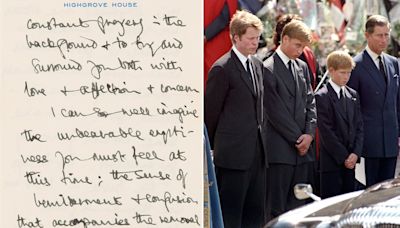 HIGHGROVE HOUSE
constant prayers in the
background & to try and
surround you both with
love & affection & concern
I can so well imagine
the unbearable empti-
ness you must feel at
this time; the sense of
bewilderment & confusion
that accompanies the removal